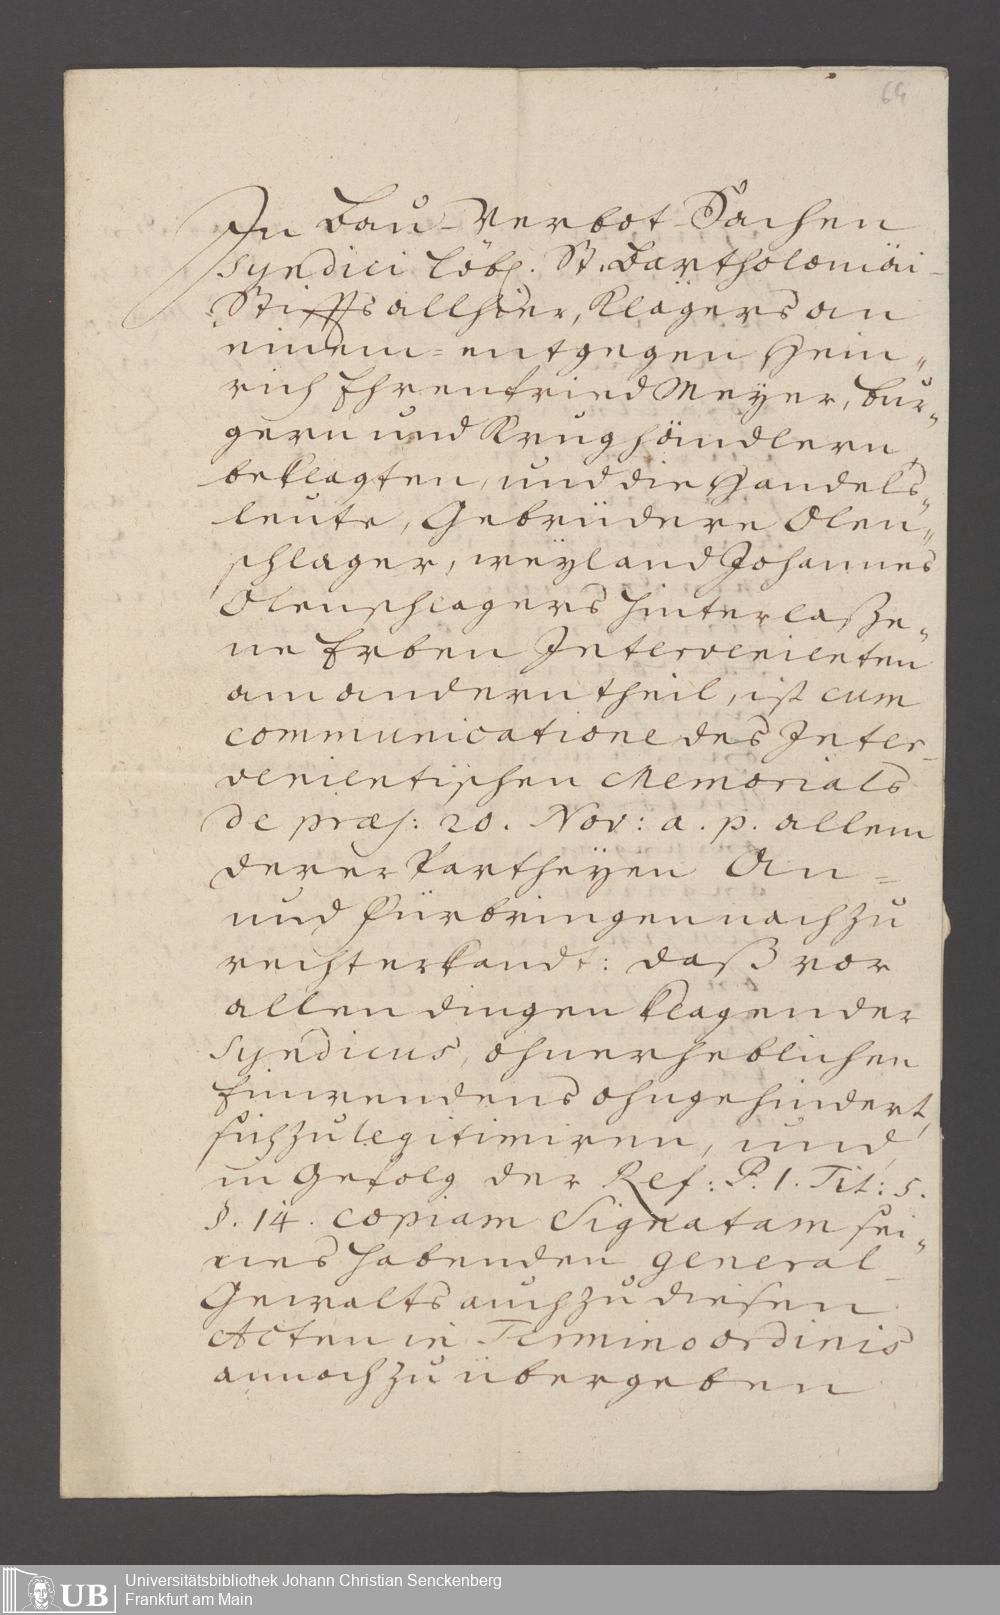 64
In Bau-Verbot-Sachen
Syndici löbl. St. Bartholomäi-
Stiffts allhier, Klägers an
einem= entgegen Hein„
rich Ehrenfried Meyer, bur„
gern und Krughändlern,
beklagten, und die Handels„
leute, Gebrüdere Olen„
schlager, weyland Johannes
Olenschlagers hinterlaße„
ne Erben Intervenienten
am andern theil, ist cum
communicatione des Inter-
venientischen Memorials
de præs: 20. Nov: a. p. allem
derer Partheyen An=
und Fürbringen nach zu
recht erkandt: daß vor
allen dingen klagender
Syndicus, ohnerheblichen
Einwendens ohngehindert,
sich zu legitimiren, und
in Gefolg der Ref: P. I. Tit: 5.
§. 14. copiam Signatam sei„
nes habenden general-
Gewalts auch zu diesen
Acten in Termino ordinis
annoch zu übergeben
UB
Universitätsbibliothek Johann Christian Senckenberg
Frankfurt am Main